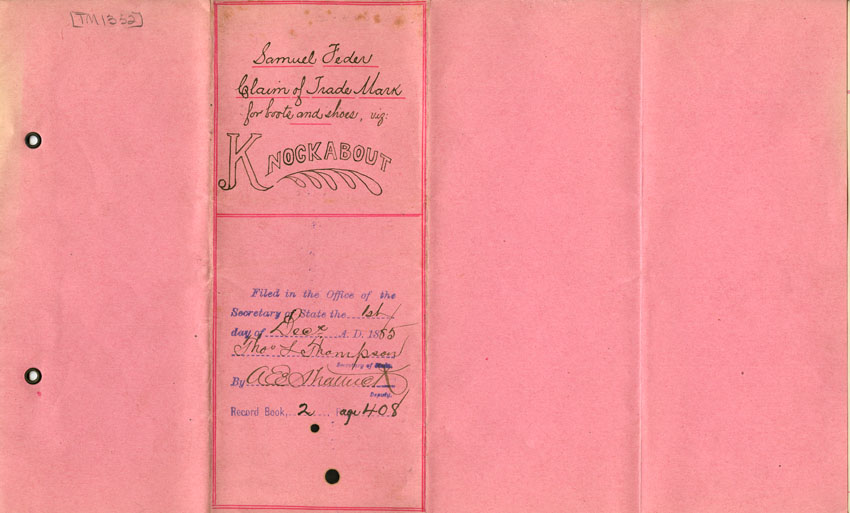 [TM1332]
Samuel Feder
Claim of Trade Mark
for boots and shoes, viz:
KNOCKABOUT
Filed in the Office of the
Secretary of State the 1st
day of Dec A. D. 1885
Thos L Thompson
Secretary of State.
By A E Shattuck
Deputy.
Record Book, 2 Page 408